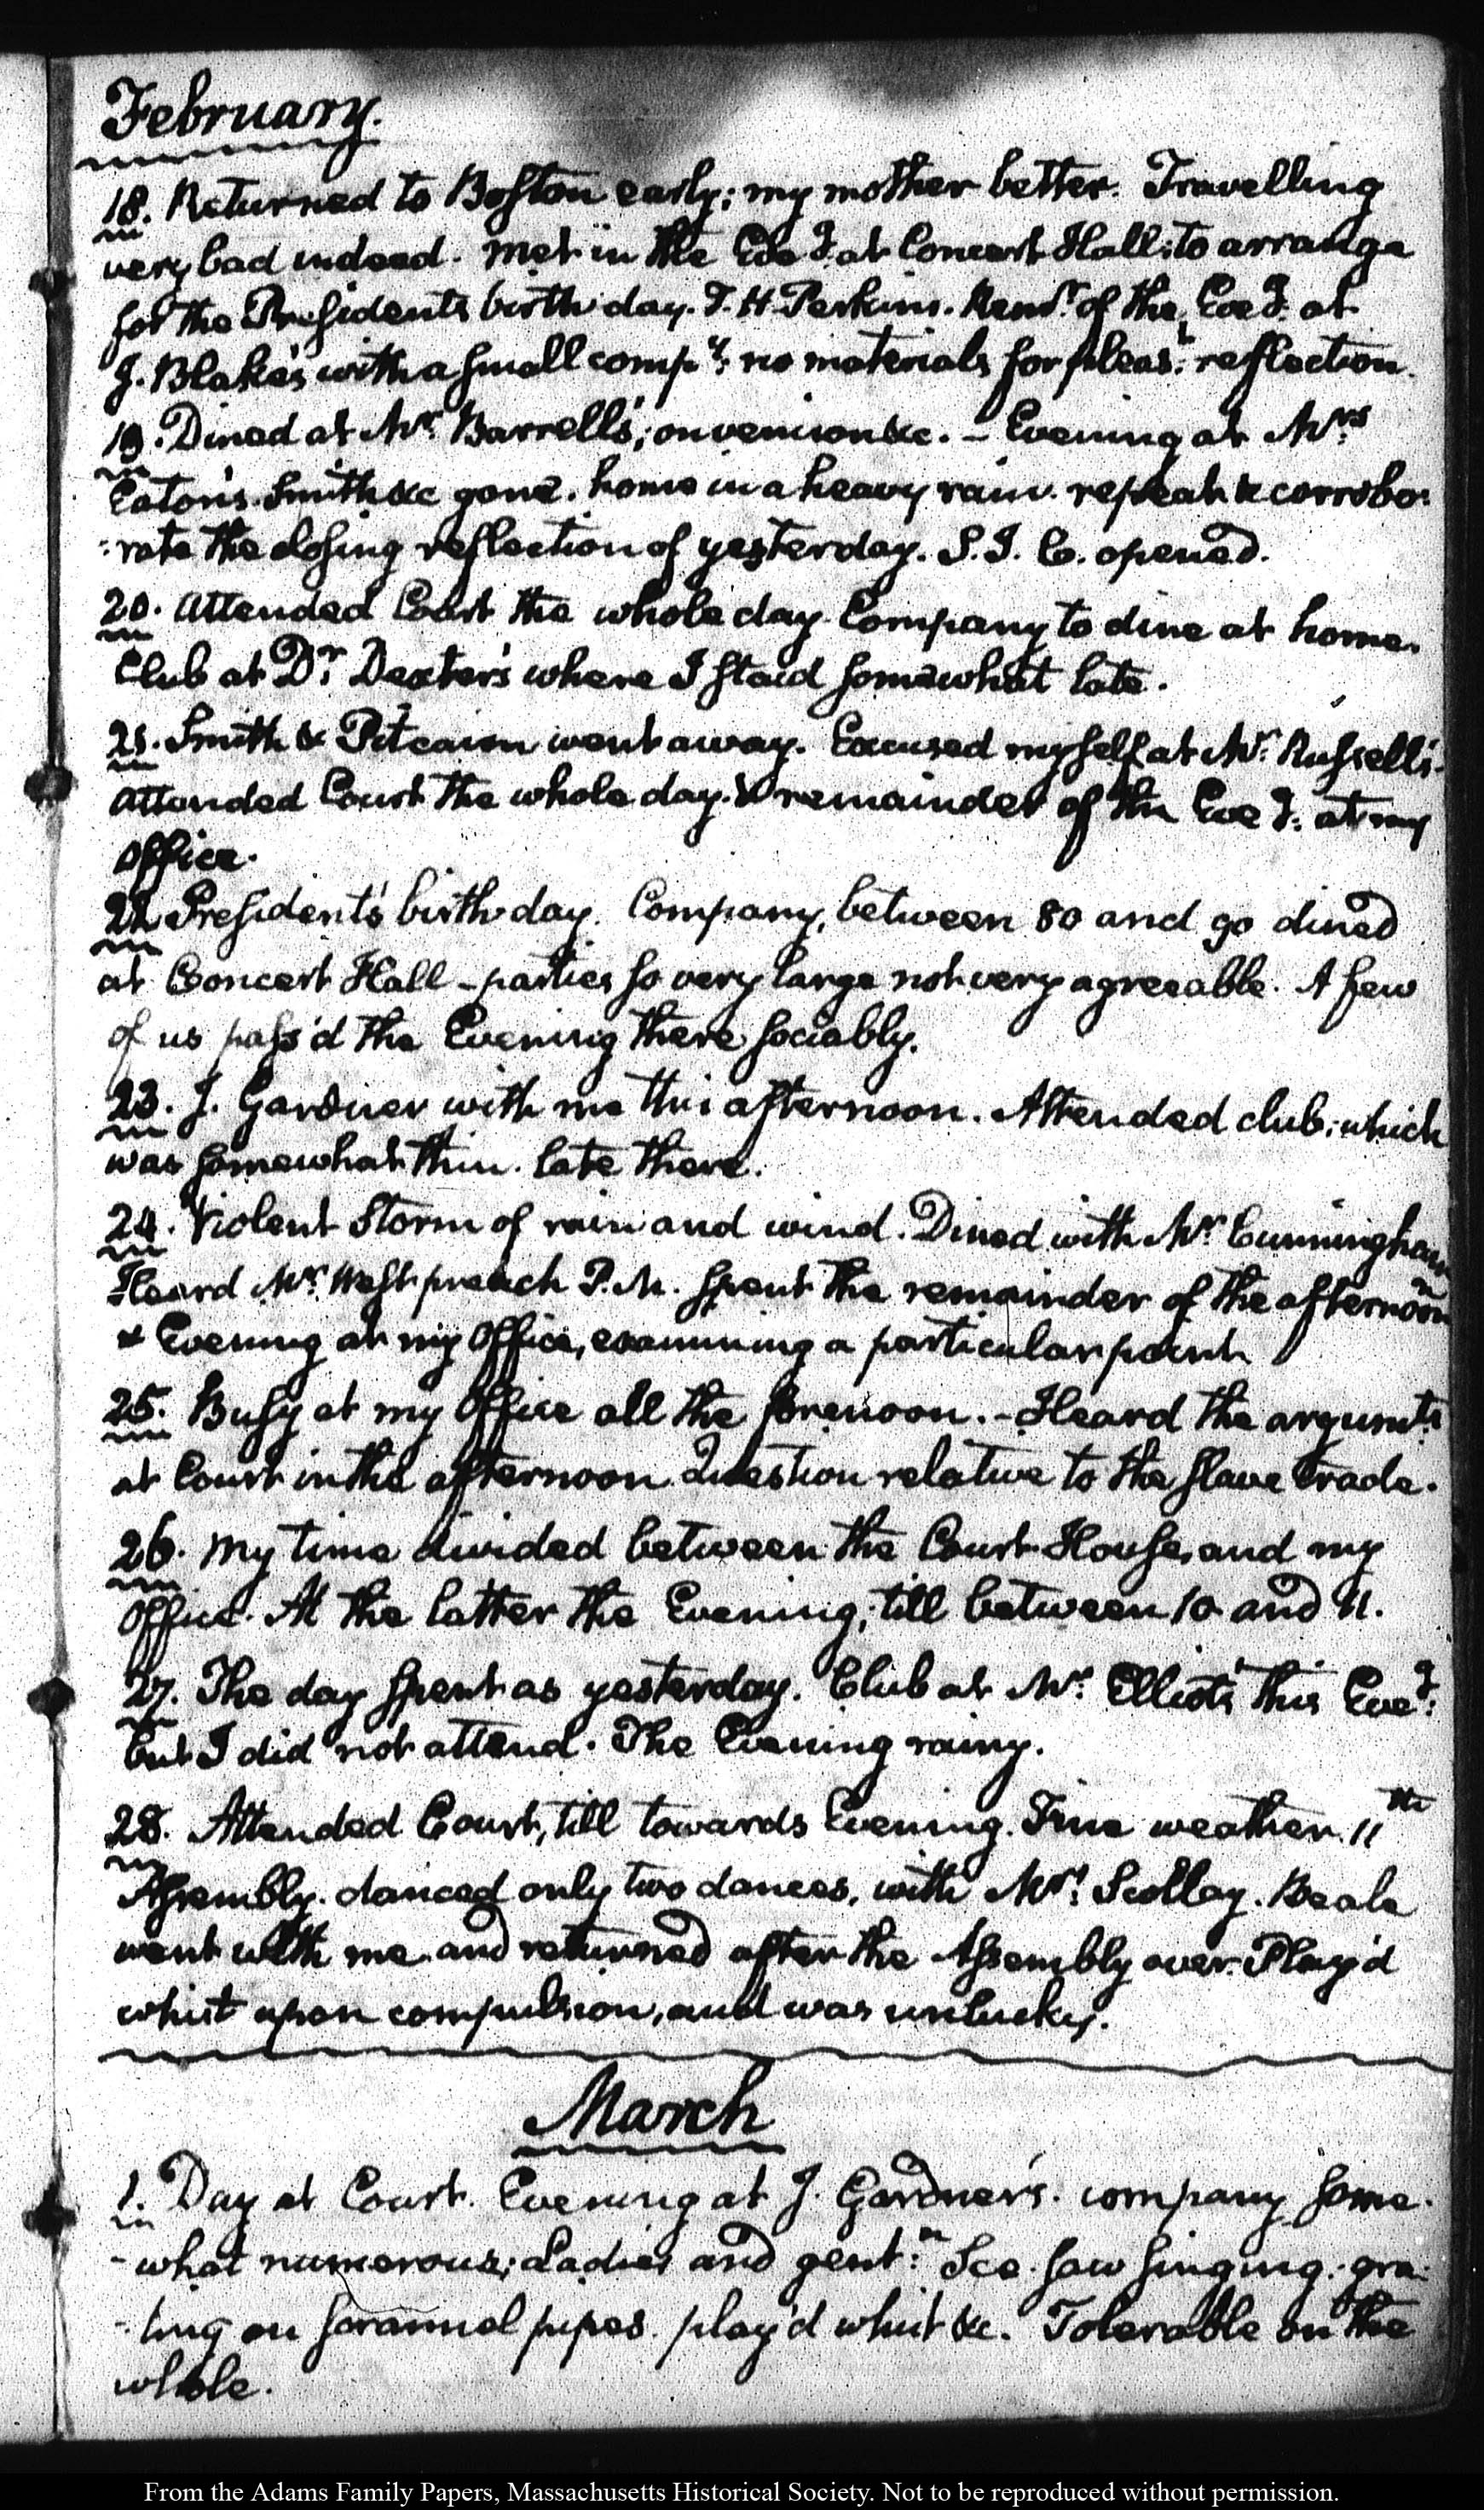 February.
18. Returned to Boston early; my mother better. Travelling
very bad indeed. Met in the Eveg. at Concert Hall: to arrange
for the Presidents birth day. T. H. Perkins. Remr. of the Eveg. at
J. Blake's with a small compy: no materials for pleast: reflection.
19. Dined at Mr. Barrell's; on venison &c. – Evening at Mrs
Eaton's. Smith &c gone. home in a heavy rain. repeat & corrobo:
:rate the closing reflection of yesterday. S. J. C. opened.
20. Attended Court the whole day. Company to dine at home.
Club at Dr. Dexter's where I staid somewhat late.
21. Smith & Pitcairn went away. Excused myself at Mr. Russell's.
attended Court the whole day. & remainder of the Eveg: at my
Office.
22 President's birth day. Company, between 80 and 90 dined
at Concert Hall – parties so very large not very agreeable. A few
of us pass'd the Evening there sociably.
23. J. Gardner with me this afternoon. Attended club; which
was somewhat thin. late there.
24. Violent Storm of rain and wind. Dined with Mr. Cunningham
Heard Mr. West preach P.M. spent the remainder of the afternoon
& Evening at my Office, examining a particular point.
25. Busy at my Office all the forenoon. – Heard the argumts:
at Court in the afternoon. Question relative to the slave trade.
26. My time divided between the Court House, and my
Office. At the latter the Evening; till between 10 and 11.
27. The day spent as yesterday. Club at Mr. Elliot's this Eveg:
but I did not attend. The Evening rainy.
28. Attended Court, till towards Evening. Fine weather. 11th
Assembly. danced only two dances, with Mrs: Scollay. Beale
went with me and returned after the Assembly over. Play'd
whist upon compulsion, and was unlucky.
March
1. Day at Court. Evening at J. Gardner's. company some-
-what numerous; Ladies and gent:n Sce-saw singing: gra:
:ting on scrannel pipes. play'd whist &c. Tolerable on the
whole.
From the Adams Family Papers, Massachusetts Historical Society. Not to be reproduced without permission.